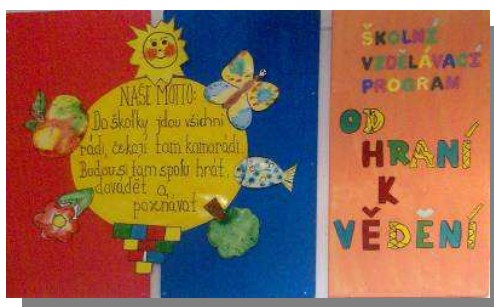 NAŠE MOTTO:
Do školky jdou všichni
rádi, čekají tam kamarádi.
Budou si tam spolu hrát,
dovádět a
poznávat
ŠKOLNÍ
VZDĚLÁVACÍ
PROGRAM
OD
HRANÍ
K
VĚDĚNÍ